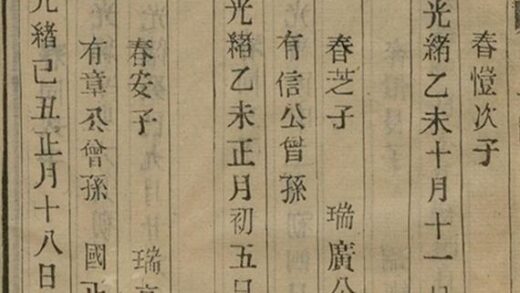 春愷次子
光緒乙未十月十一日
春芝子　瑞廣公
有信公曾孫
光緒乙未正月初五日
春安子　瑞
有章公曾孫　國正
光緒己丑正月十八日